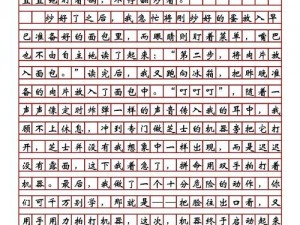 炒好了之后，我急忙将刚炒好的蛋放入早
已准备好的面包里，而眼睛则盯着菜单，嘴巴
也不由自主地读了起来：“第二步，将肉片放
入面包。”读完后，我又跑向冰箱，把昨晚准
备的肉片放入了面包中。“叮叮叮”，随着一
声声像定时炸弹一样的声音传入我的耳中，我
顾不上休息，冲到专门做芝士的机器旁把它打
开，但是芝士并没有我想象中一样出现，而是迟迟
没有露面，这下我着急了，拼命用双手拍打着
机器。最后，我做了一个十分危险的动作，你
们可千万别学，那就是……把脸往出口看，又
用手用力拍打机器，这次，机器终于启动起来